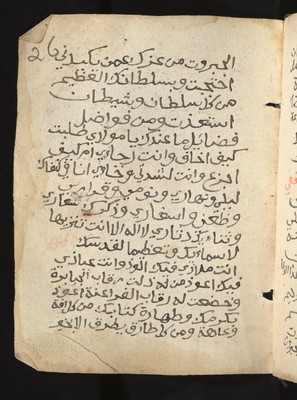 الجبروت من عزك عمن يكيدني
احتجبت وبسلطانك العظيم
من كل سلطان وشيطان
استعذت ومن فواضل
فضائل ما عندك يا مولاي طلبت
كيف اخاف وانت رجاءي ام كيف
اجزع وانت لشدتي ورخاءي انا في كنفك
ليلي ونهاري ونومي وقراري
وظعني واسفاري وذكرك شعاري
وثناءك دثاري لا اله الا انت تنزيها
لاسماءك وتعظيما لقدسك
انت ملاذي فبك الوذ وانت عياذي
فبك اعوذ من ذلت له رقاب الجبابرة
وخضعت له رقاب الفراعنة اعوذ
بكرمك وطهارة كتابك من كل افة
وعاهة ومن كل طارق يطرق الا بخير